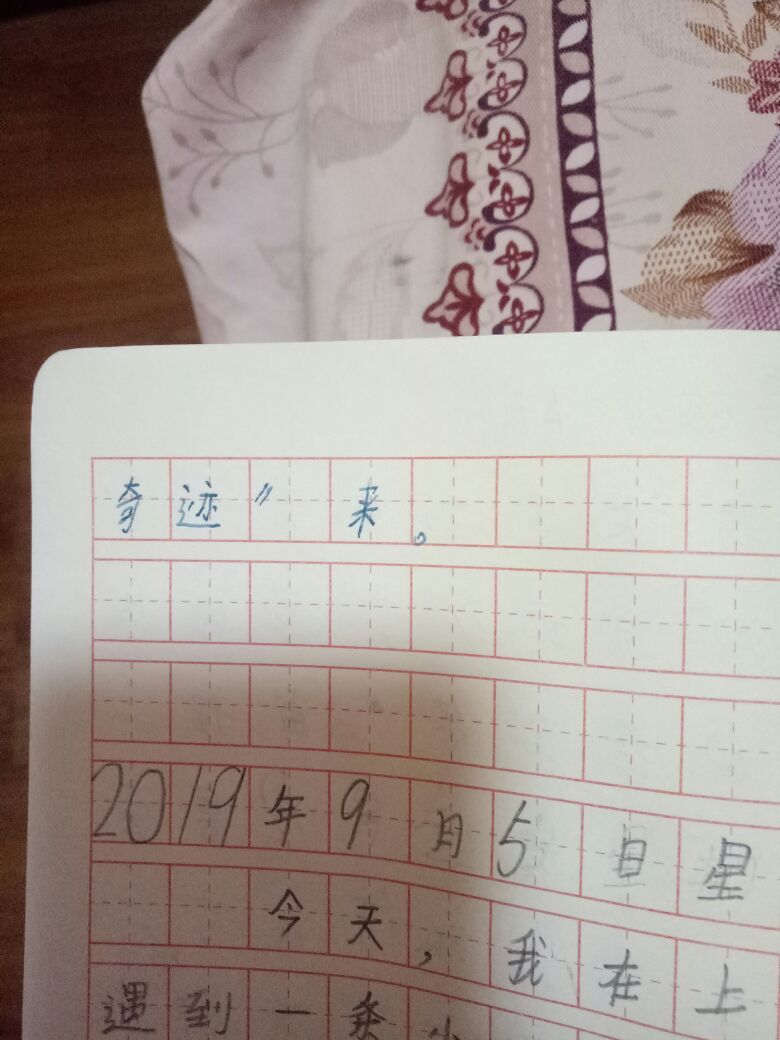 奇迹”来。
2019年9月5日星
今天，我在上
遇到一条小